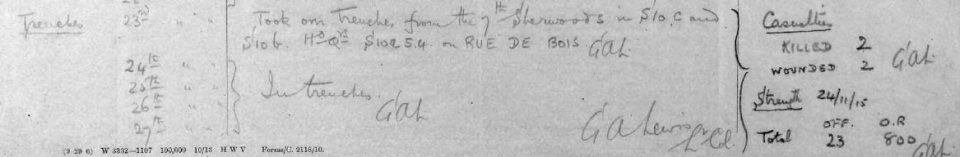 Trenches 23rd " " Took over Trenches from the 7th Sherwoods in S10.C and
S10b. Hd Qrs S10a 5.4. on RUE DE BOIS GAL
24th " "
25th " " In trenches.
26th " " GAL
27th " "
G A Lewis Lt Col.
Casualties
KILLED 2
WOUNDED 2 GAL
Strength 24/11/15
OFF. O.R
Total 23 800 GAL
(9 29 6) W 3332—1107 100,000 10/13 H W V Forms/C. 2118/10.